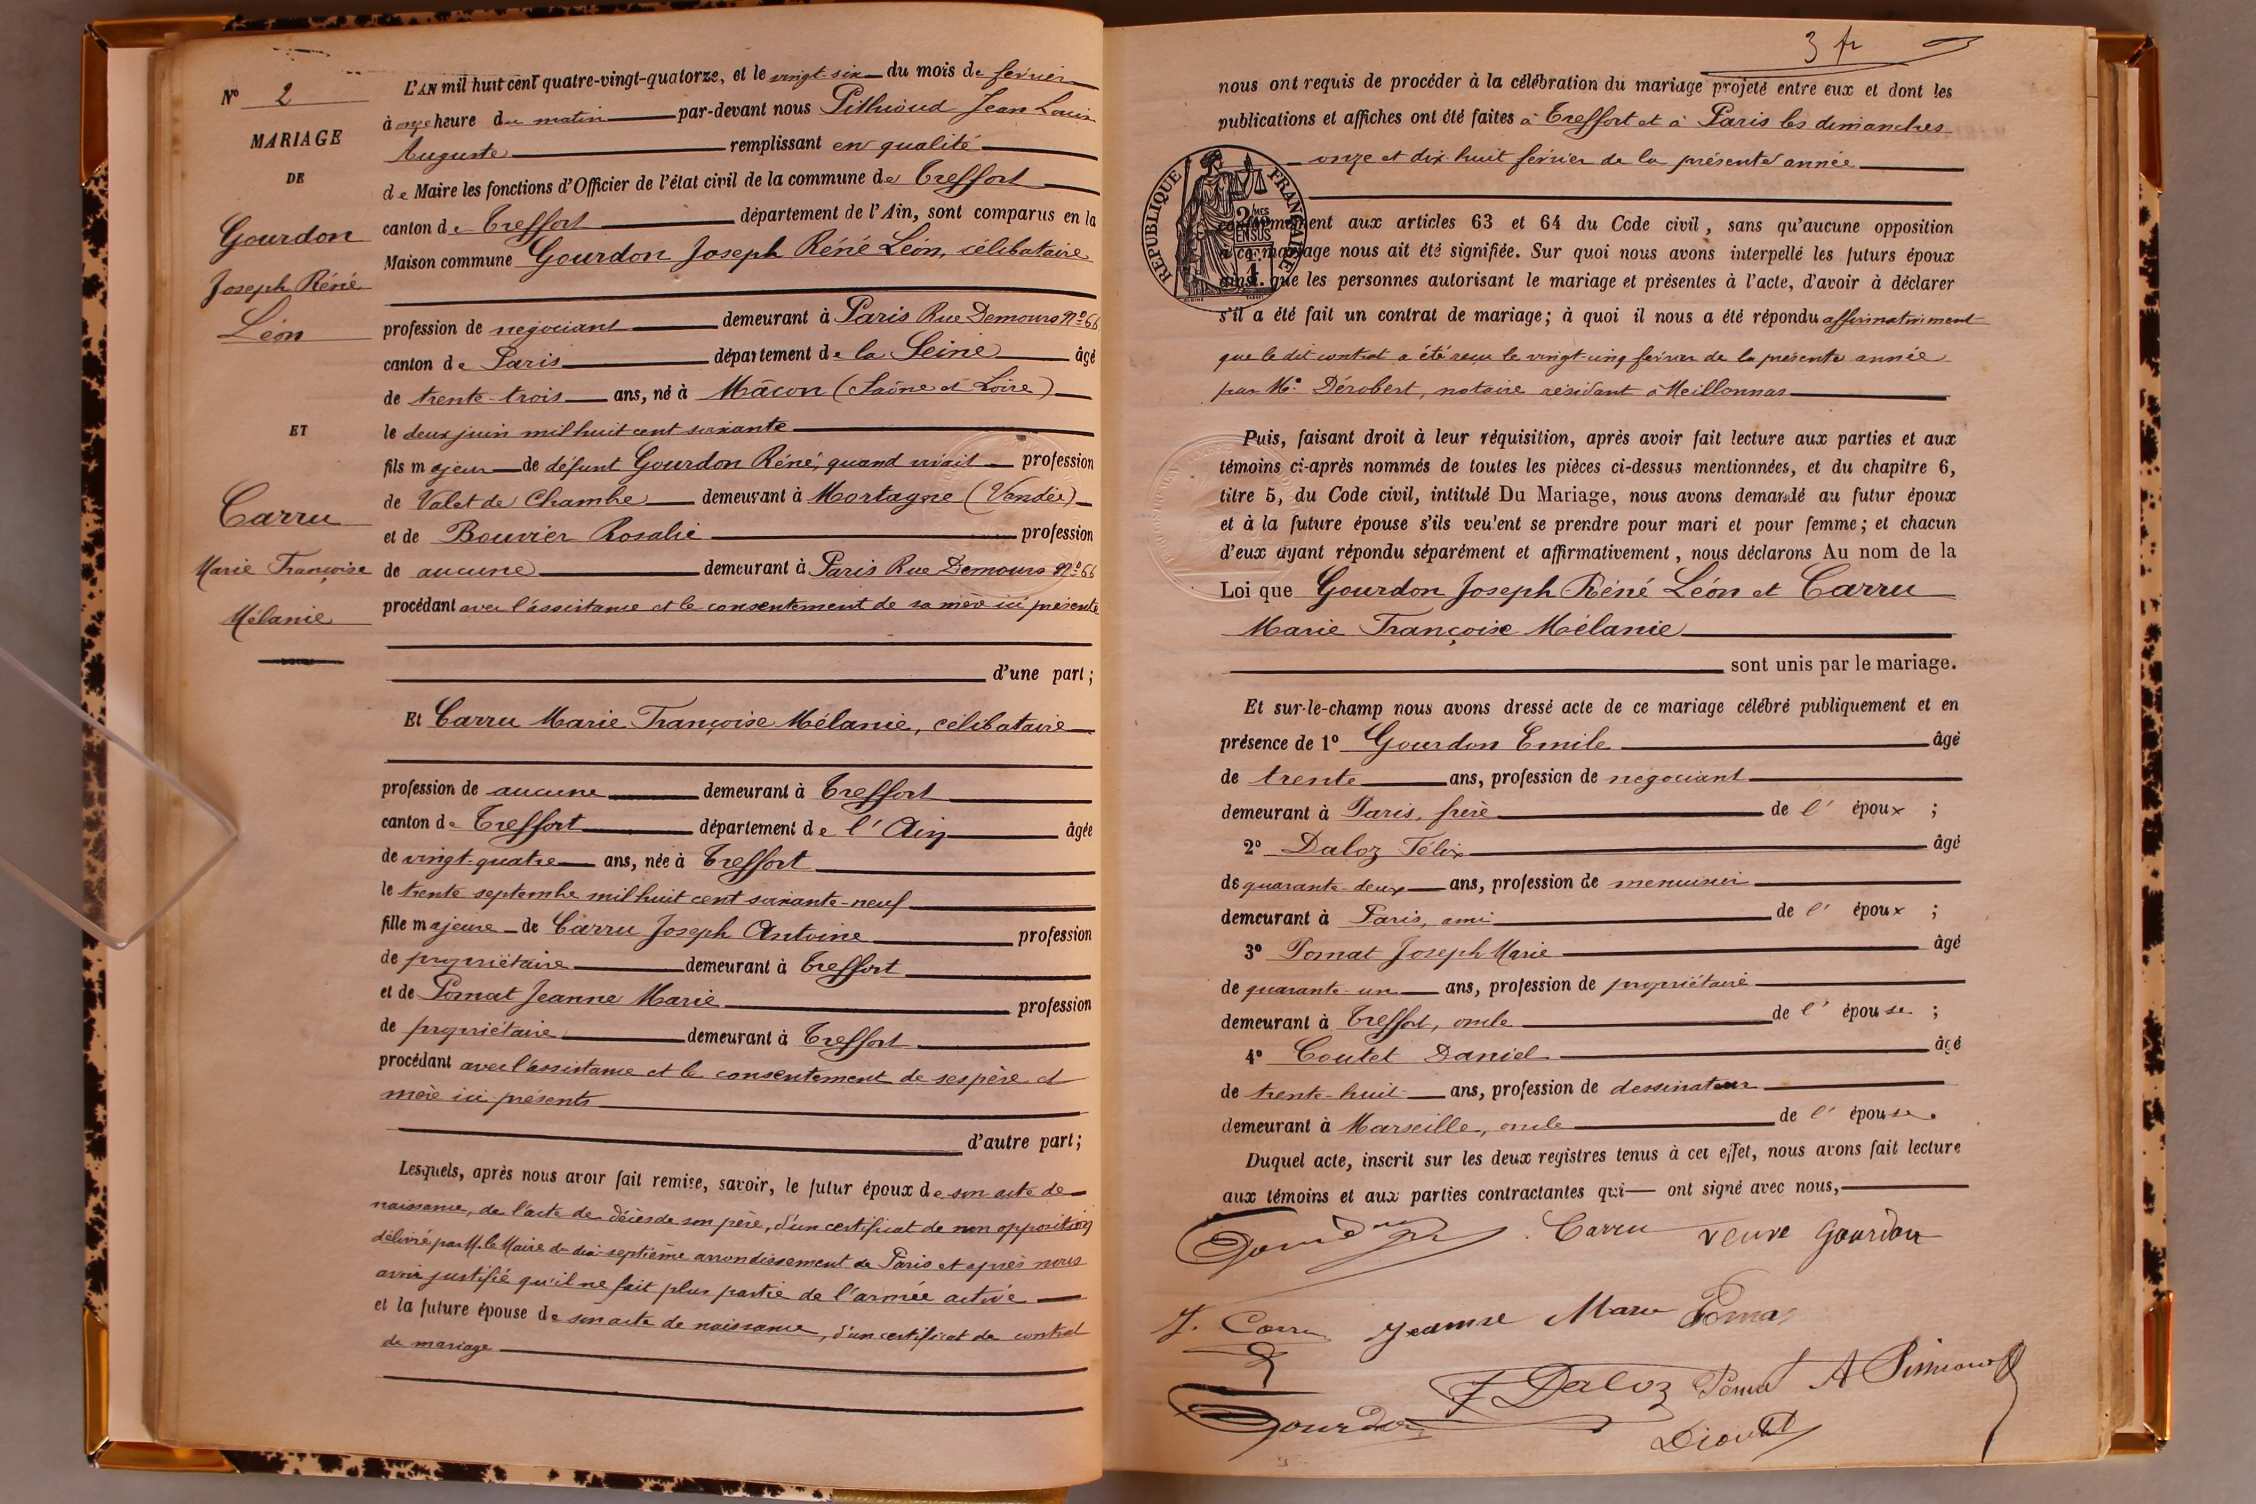 N° 2
MARIAGE
DE
Gourdon
Joseph Réné
Léon
ET
Carru
Marie Françoise
Mélanie
L'AN mil huit cent quatre-vingt-quatorze, et le vingt-six du mois de fevrier
à onze heure du matin par-devant nous Pithioud Jean Louis
Auguste remplissant en qualité
de Maire les fonctions d'Officier de l'état civil de la commune de Treffort
canton de Treffort département de l'Ain, sont comparus en la
Maison commune Gourdon Joseph Réné Léon, célibataire
profession de negociant demeurant à Paris Rue Demours N° 66
canton de Paris département de la Seine âgé
de trente-trois ans, né à Mâcon (Saône et Loire)
le deux juin mil huit cent soixante
fils majeur de défunt Gourdon Réné, quand vivait profession
de Valet de Chambre demeurant à Mortagne (Vendée)
et de Bouvier Rosalie profession
de aucune demeurant à Paris Rue Demours N° 66
procédant avec l'assistance et le consentement de sa mère ici présente
d'une part;
Et Carru Marie Françoise Mélanie, célibataire
profession de aucune demeurant à Treffort
canton de Treffort département de l'Ain âgée
de vingt-quatre ans, née à Treffort
le trente septembre mil huit cent soixante-neuf
fille majeure de Carru Joseph Antoine profession
de propriétaire demeurant à Treffort
et de Pomat Jeanne Marie profession
de propriétaire demeurant à Treffort
procédant avec l'assistance et le consentement de ses père et
mère ici présents
d'autre part;
Lesquels, après nous avoir fait remise, savoir, le futur époux de son acte de
naissance, de l'acte de décès de son père, d'un certificat de non opposition
délivré par M. le Maire du dix-septième arrondissement de Paris et après nous
avoir justifié qu'il ne fait plus partie de l'armée active
et la future épouse de son acte de naissance, d'un certificat de contrat
de mariage
3 fr
nous ont requis de procéder à la célébration du mariage projeté entre eux et dont les
publications et affiches ont été faites à Treffort et à Paris les dimanches
onze et dix-huit février de la présente année
RÉPUBLIQUE FRANÇAISE
conformément aux articles 63 et 64 du Code civil, sans qu'aucune opposition
à ce mariage nous ait été signifiée. Sur quoi nous avons interpellé les futurs époux
ainsi que les personnes autorisant le mariage et présentes à l'acte, d'avoir à déclarer
s'il a été fait un contrat de mariage; à quoi il nous a été répondu affirmativement
que le dit contrat a été reçu le vingt-cinq fevrier de la présente année
par Me Dérobert, notaire résidant à Meillonnas
Puis, faisant droit à leur réquisition, après avoir fait lecture aux parties et aux
témoins ci-après nommés de toutes les pièces ci-dessus mentionnées, et du chapitre 6,
titre 5, du Code civil, intitulé Du Mariage, nous avons demandé au futur époux
et à la future épouse s'ils veulent se prendre pour mari et pour femme; et chacun
d'eux ayant répondu séparément et affirmativement, nous déclarons Au nom de la
Loi que Gourdon Joseph Réné Léon et Carru
Marie Françoise Mélanie
sont unis par le mariage.
Et sur-le-champ nous avons dressé acte de ce mariage célébré publiquement et en
présence de 1° Gourdon Emile âgé
de trente ans, profession de negociant
demeurant à Paris, frère de l'époux;
2° Daloz Félix âgé
de quarante-deux ans, profession de menuisier
demeurant à Paris, ami de l'époux;
3° Pomat Joseph Marie âgé
de quarante-un ans, profession de propriétaire
demeurant à Treffort, oncle de l'épouse;
4° Coutet Daniel âgé
de trente-huit ans, profession de dessinateur
demeurant à Marseille, oncle de l'épouse.
Duquel acte, inscrit sur les deux registres tenus à cet effet, nous avons fait lecture
aux témoins et aux parties contractantes qui ont signé avec nous,
Carru veuve Gourdon
J. Carru Jeanne Marie Poma
F Daloz Pomat
Gourdon